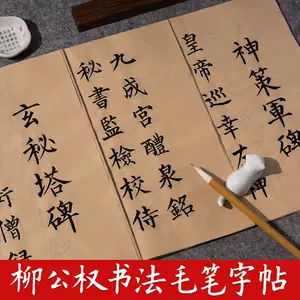 神策軍碑
皇帝巡幸左神
九成宮醴泉銘
秘書監檢校侍
玄秘塔碑
街僧録
柳公权书法毛笔字帖